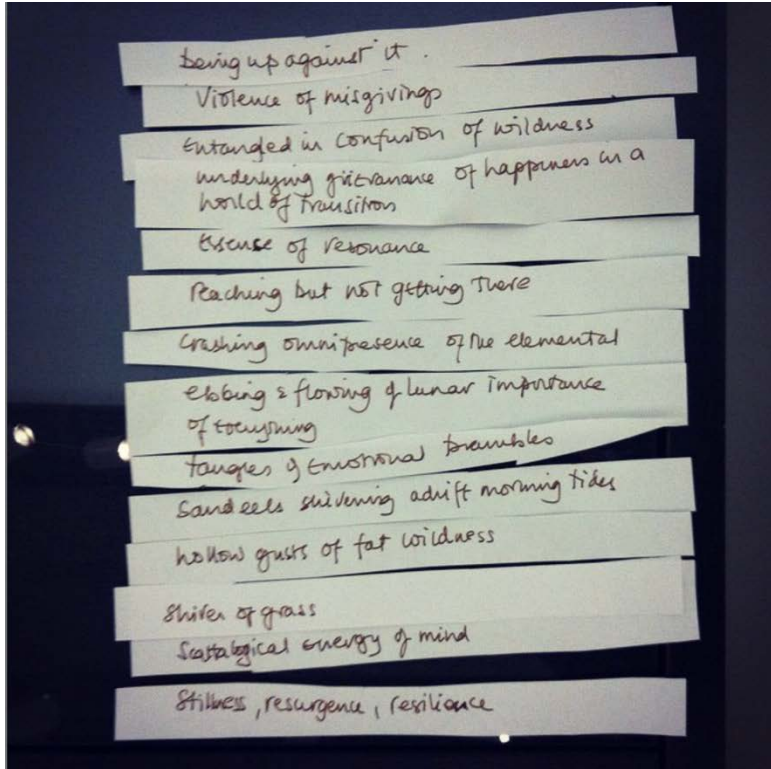 being up against it.
Violence of misgivings
Entangled in confusion of wildness
underlying of happiness in a
world of transition
Essence of resonance
Reaching but not getting there
Crashing omnipresence of the elemental
ebbing & flowing of lunar importance
of everything
tangles of emotional brambles
Sandeels shivering adrift morning tides
hollow gusts of fat wildness
Shiver of grass
Scatalogical energy of mind
Stillness, resurgence, resilience